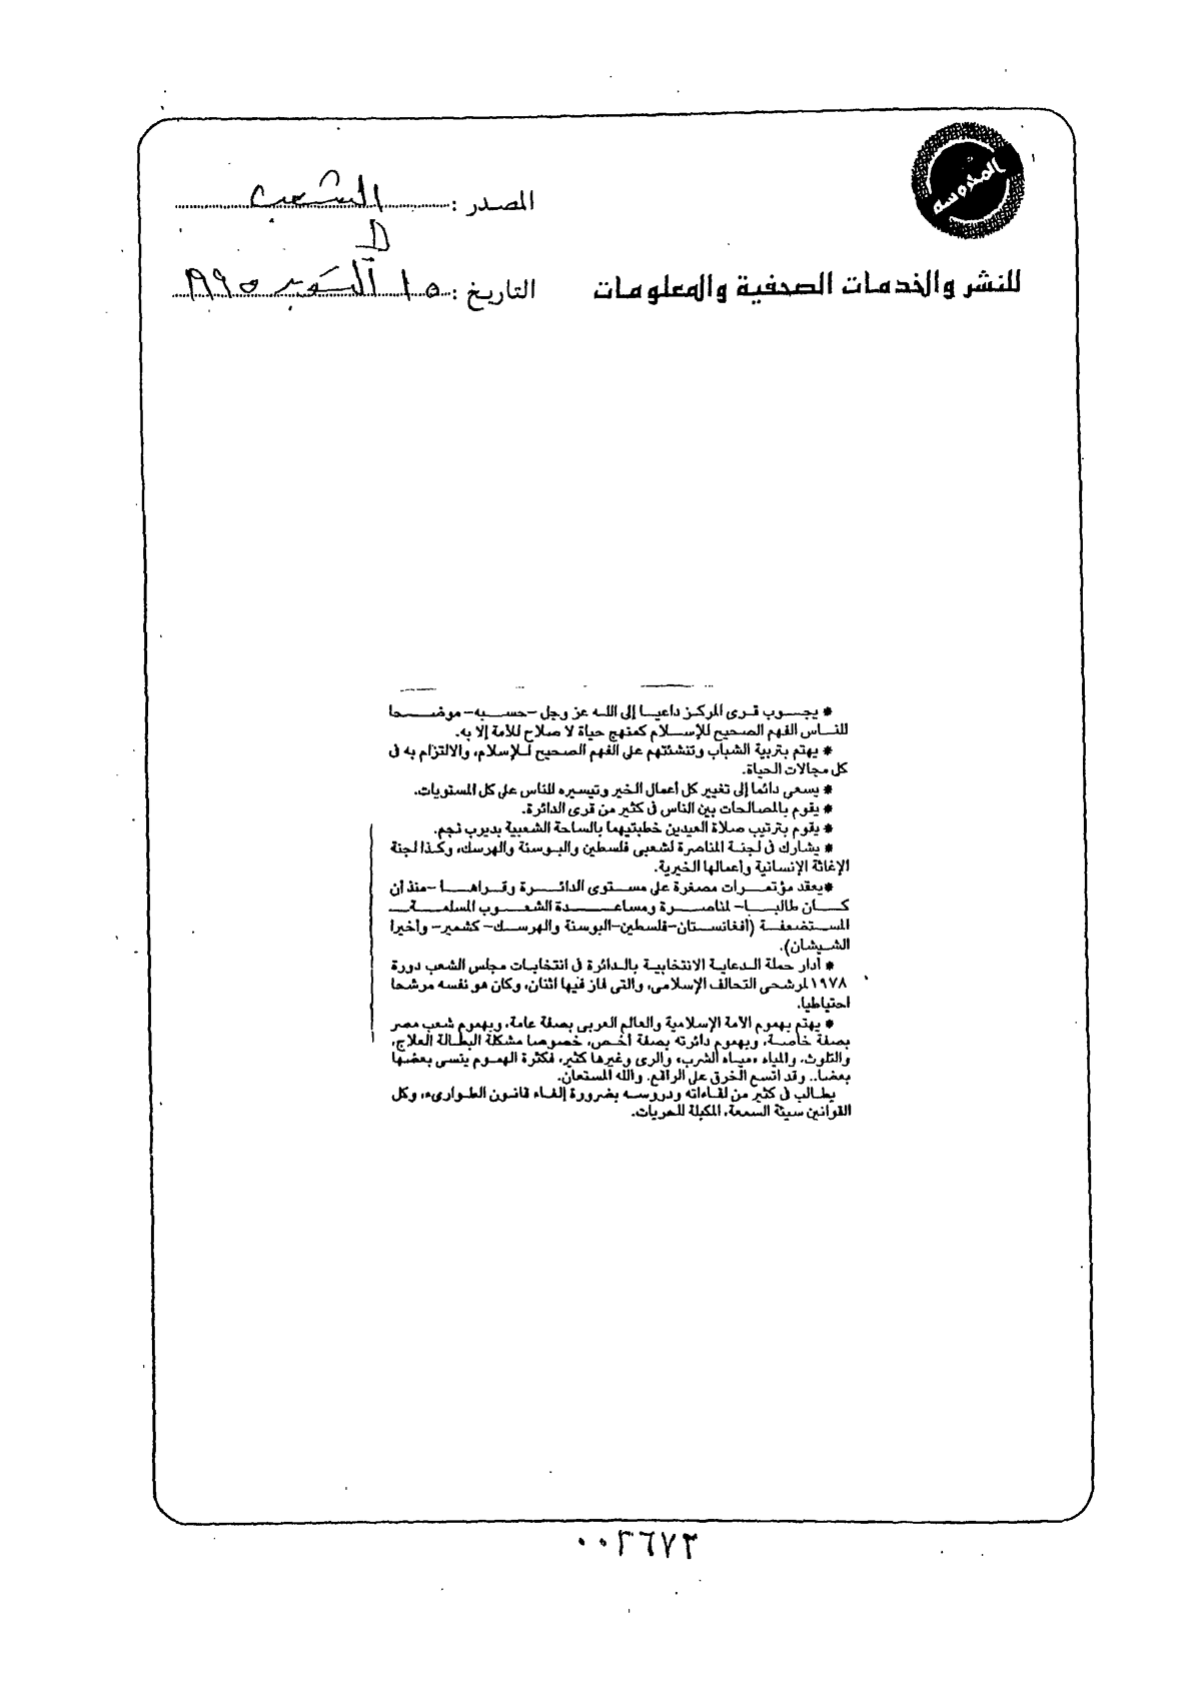 المحروسه
المصدر : الشعب
للنشر والخدمات الصحفية والمعلومات
التاريخ : ١٥ أكتوبر ١٩٩٥
* يجوب قرى المركز داعيا إلى الله عز وجل -حسبه- موضحا
للناس الفهم الصحيح للإسلام كمنهج حياة لا صلاح للأمة إلا به.
* يهتم بتربية الشباب وتنشئتهم على الفهم الصحيح للإسلام، والالتزام به فى
كل مجالات الحياة.
* يسعى دائما إلى تغيير كل أعمال الخير وتيسيره للناس على كل المستويات.
* يقوم بالمصالحات بين الناس فى كثير من قرى الدائرة.
* يقوم بترتيب صلاة العيدين خطبتيهما بالساحة الشعبية بديرب نجم.
* يشارك فى لجنة المناصرة لشعبى فلسطين والبوسنة والهرسك، وكذا لجنة
الإغاثة الإنسانية وأعمالها الخيرية.
*يعقد مؤتمرات مصغرة على مستوى الدائرة وقراها -منذ أن
كان طالبا- لمناصرة ومساعدة الشعوب المسلمة
المستضعفة (أفغانستان-فلسطين-البوسنة والهرسك- كشمير- وأخيرا
الشيشان).
* أدار حملة الدعاية الانتخابية بالدائرة فى انتخابات مجلس الشعب دورة
١٩٧٨ لمرشحى التحالف الإسلامى، والتى فاز فيها اثنان، وكان هو نفسه مرشحا
احتياطيا.
* يهتم بهموم الأمة الإسلامية والعالم العربى بصفة عامة، وبهموم شعب مصر
بصفة خاصة، وبهموم دائرته بصفة أخص، خصوصا مشكلة البطالة العلاج،
والتلوث، والمياه «مياه الشرب، والرى وغيرها كثير، فكثرة الهموم ينسى بعضها
بعضا.. وقد اتسع الخرق على الراقع. والله المستعان.
يطالب فى كثير من لقاءاته ودروسه بضرورة إلغاء قانون الطوارىء، وكل
القوانين سيئة السمعة، المكبلة للحريات.
٠٠٣٦٧٣